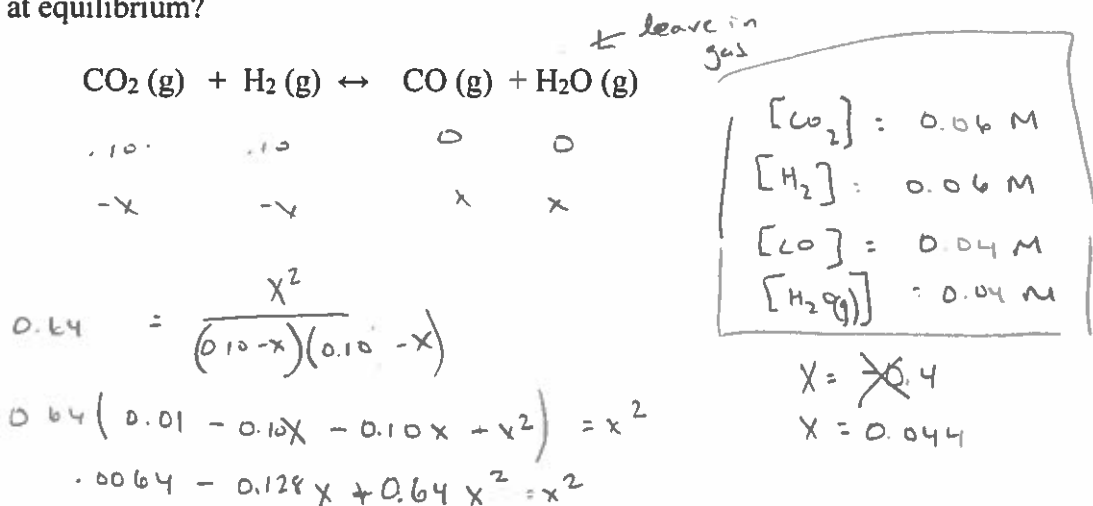 at equilibrium?
← leave in gas
CO₂ (g) + H₂ (g) ↔ CO (g) + H₂O (g)
.10 .10 0 0
-x -x x x
0.64 = x² / (0.10 -x)(0.10 -x)
0.64 ( 0.01 - 0.10x - 0.10x + x² ) = x²
.0064 - 0.128x + 0.64x² = x²
[CO₂] : 0.06 M
[H₂] : 0.06 M
[CO] = 0.04 M
[H₂O(g)] : 0.04 M
x = -0.4
x = 0.044